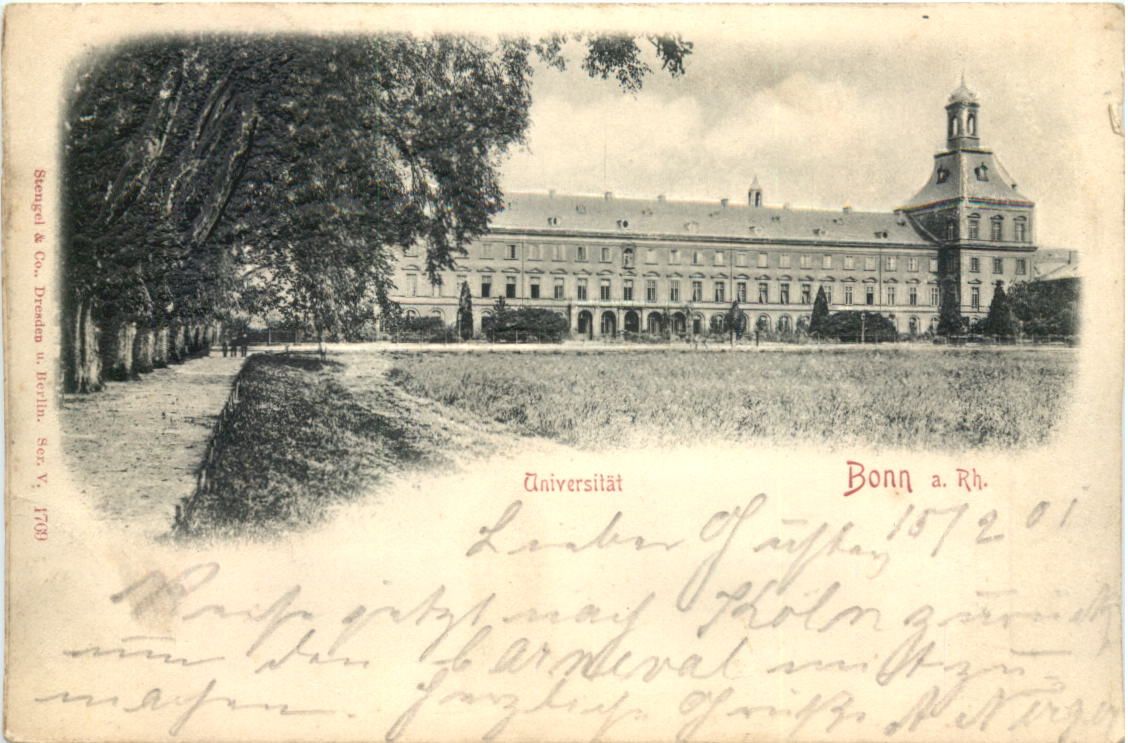 Stengel & Co., Dresden u. Berlin. Ser. V, 1769
Universität
Bonn a. Rh.
15/2 01
Lieber
Reise jetzt nach Köln zurück
um den Carneval mitzu-
machen. Herzliche Grüße A